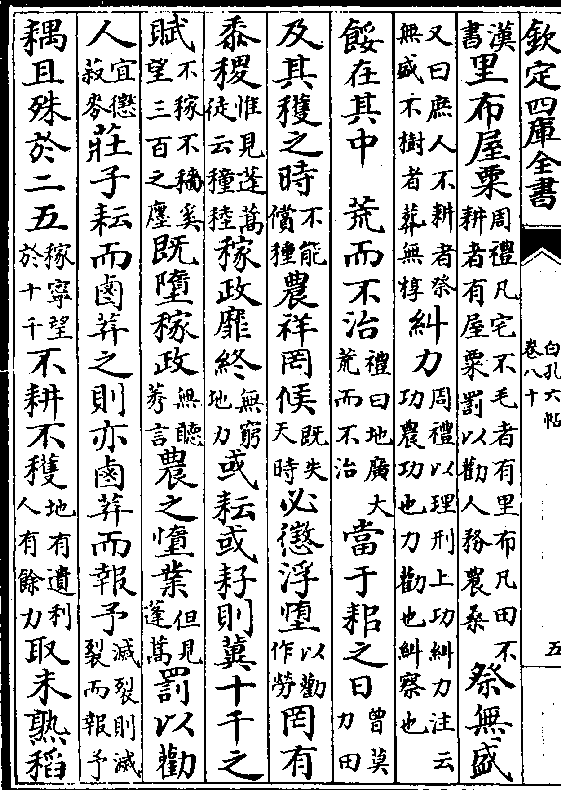 欽定四庫全書
白孔六帖
卷八十
五
漢書里布屋粟周禮凡宅不毛者有里布凡田不耕者有屋粟罰以勸人務農桑祭無盛
又曰庶人不耕者祭無盛不樹者葬無椁糾力周禮以理刑上功糾力注云功農功也力勸也糾察也
餒在其中　荒而不治禮曰地廣大荒而不治當于耜之日曾莫力田
及其穫之時不能償種農祥罔候既失天時必懲浮墮以勸作勞罔有
黍稷惟見蓬蒿徒云穜稑稼政靡終無窮地力或耘或耔則冀十千之
賦不稼不穡奚望三百之廛既墮稼政無聽莠言農之憧業但見蓬蒿罰以勸
人宜懲菽麥莊子耘而鹵莽之則亦鹵莽而報予滅裂則滅裂而報予
耦且殊於二五稼寧望於十千不耕不穫地有遺利人有餘力取未熟稻